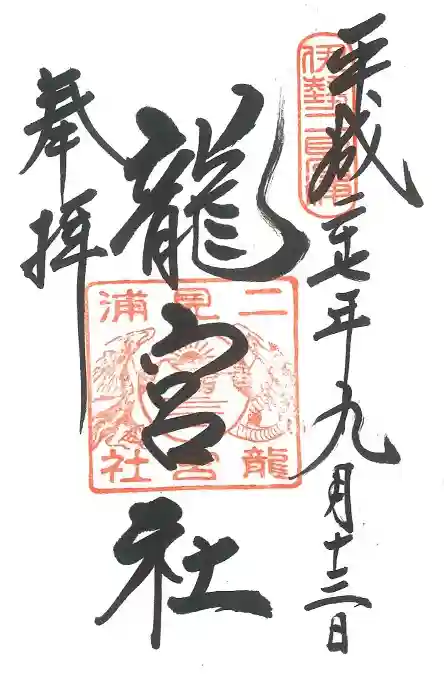 平成二十七年九月十三日
伊勢二見浦
龍宮社
二見浦
龍宮社
奉拝